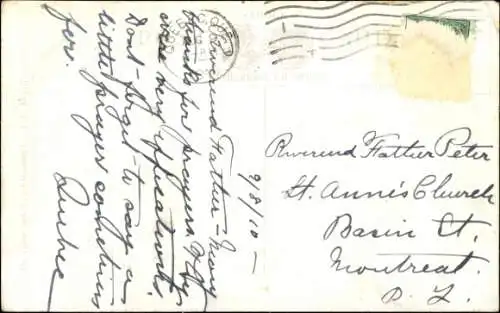 9/8/10 —
Reverend Father — Many
thanks for prayers. They
were very efficacious.
Dont forget to say a
little prayer sometimes
for.
Quebec
Reverend Father Peter
St. Anne's Church
Basin St.
Montreal.
P. Q.